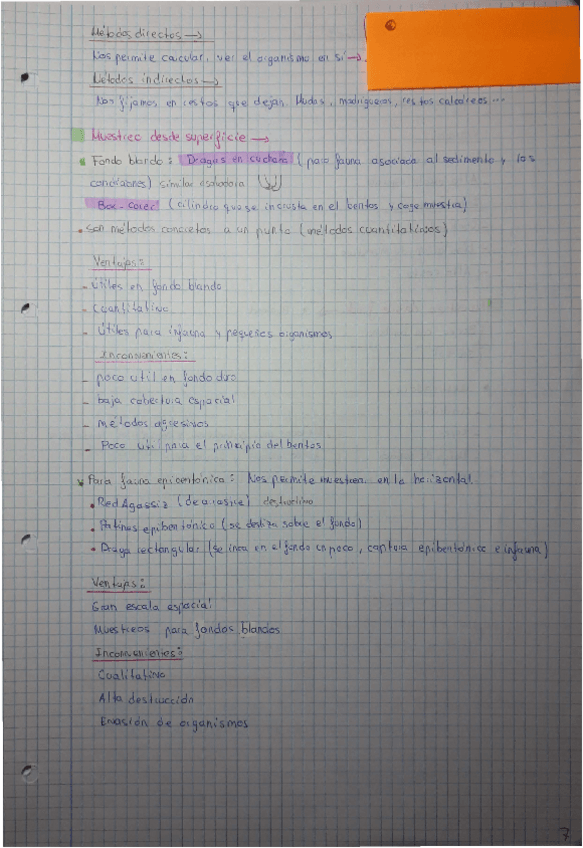 Métodos directos →
Nos permite calcular, ver el organismo en sí →.
Métodos indirectos →
Nos fijamos en restos que dejan. Mudas, madrigueras, restos calcáreos...
Muestreo desde superficie →
Fondo blando: Dragas en cuchara (para fauna asociada al sedimento y los
) similar
Box-corer (cilindro que se incrusta en el bentos y coge muestra)
• son métodos concretos a un punto (métodos cuantitativos)
Ventajas:
- útiles en fondo blando
- cuantitativo
- útiles para infauna y pequeños organismos
Inconvenientes:
- poco util en fondo duro
- baja cobertura espacial
- métodos agresivos
- Poco util para el principio del bentos
Para fauna epibentónica: Nos permite muestrear en la horizontal
• Red Agassiz (de arrastre) destructivo
• Patines epibentónico (se desliza sobre el fondo)
• Draga rectangular (se inca en el fondo un poco, captura epibentónica e infauna)
Ventajas:
Gran escala espacial
Muestreos para fondos blandos
Inconvenientes:
Cualitativo
Alta destrucción
Evasión de organismos
7